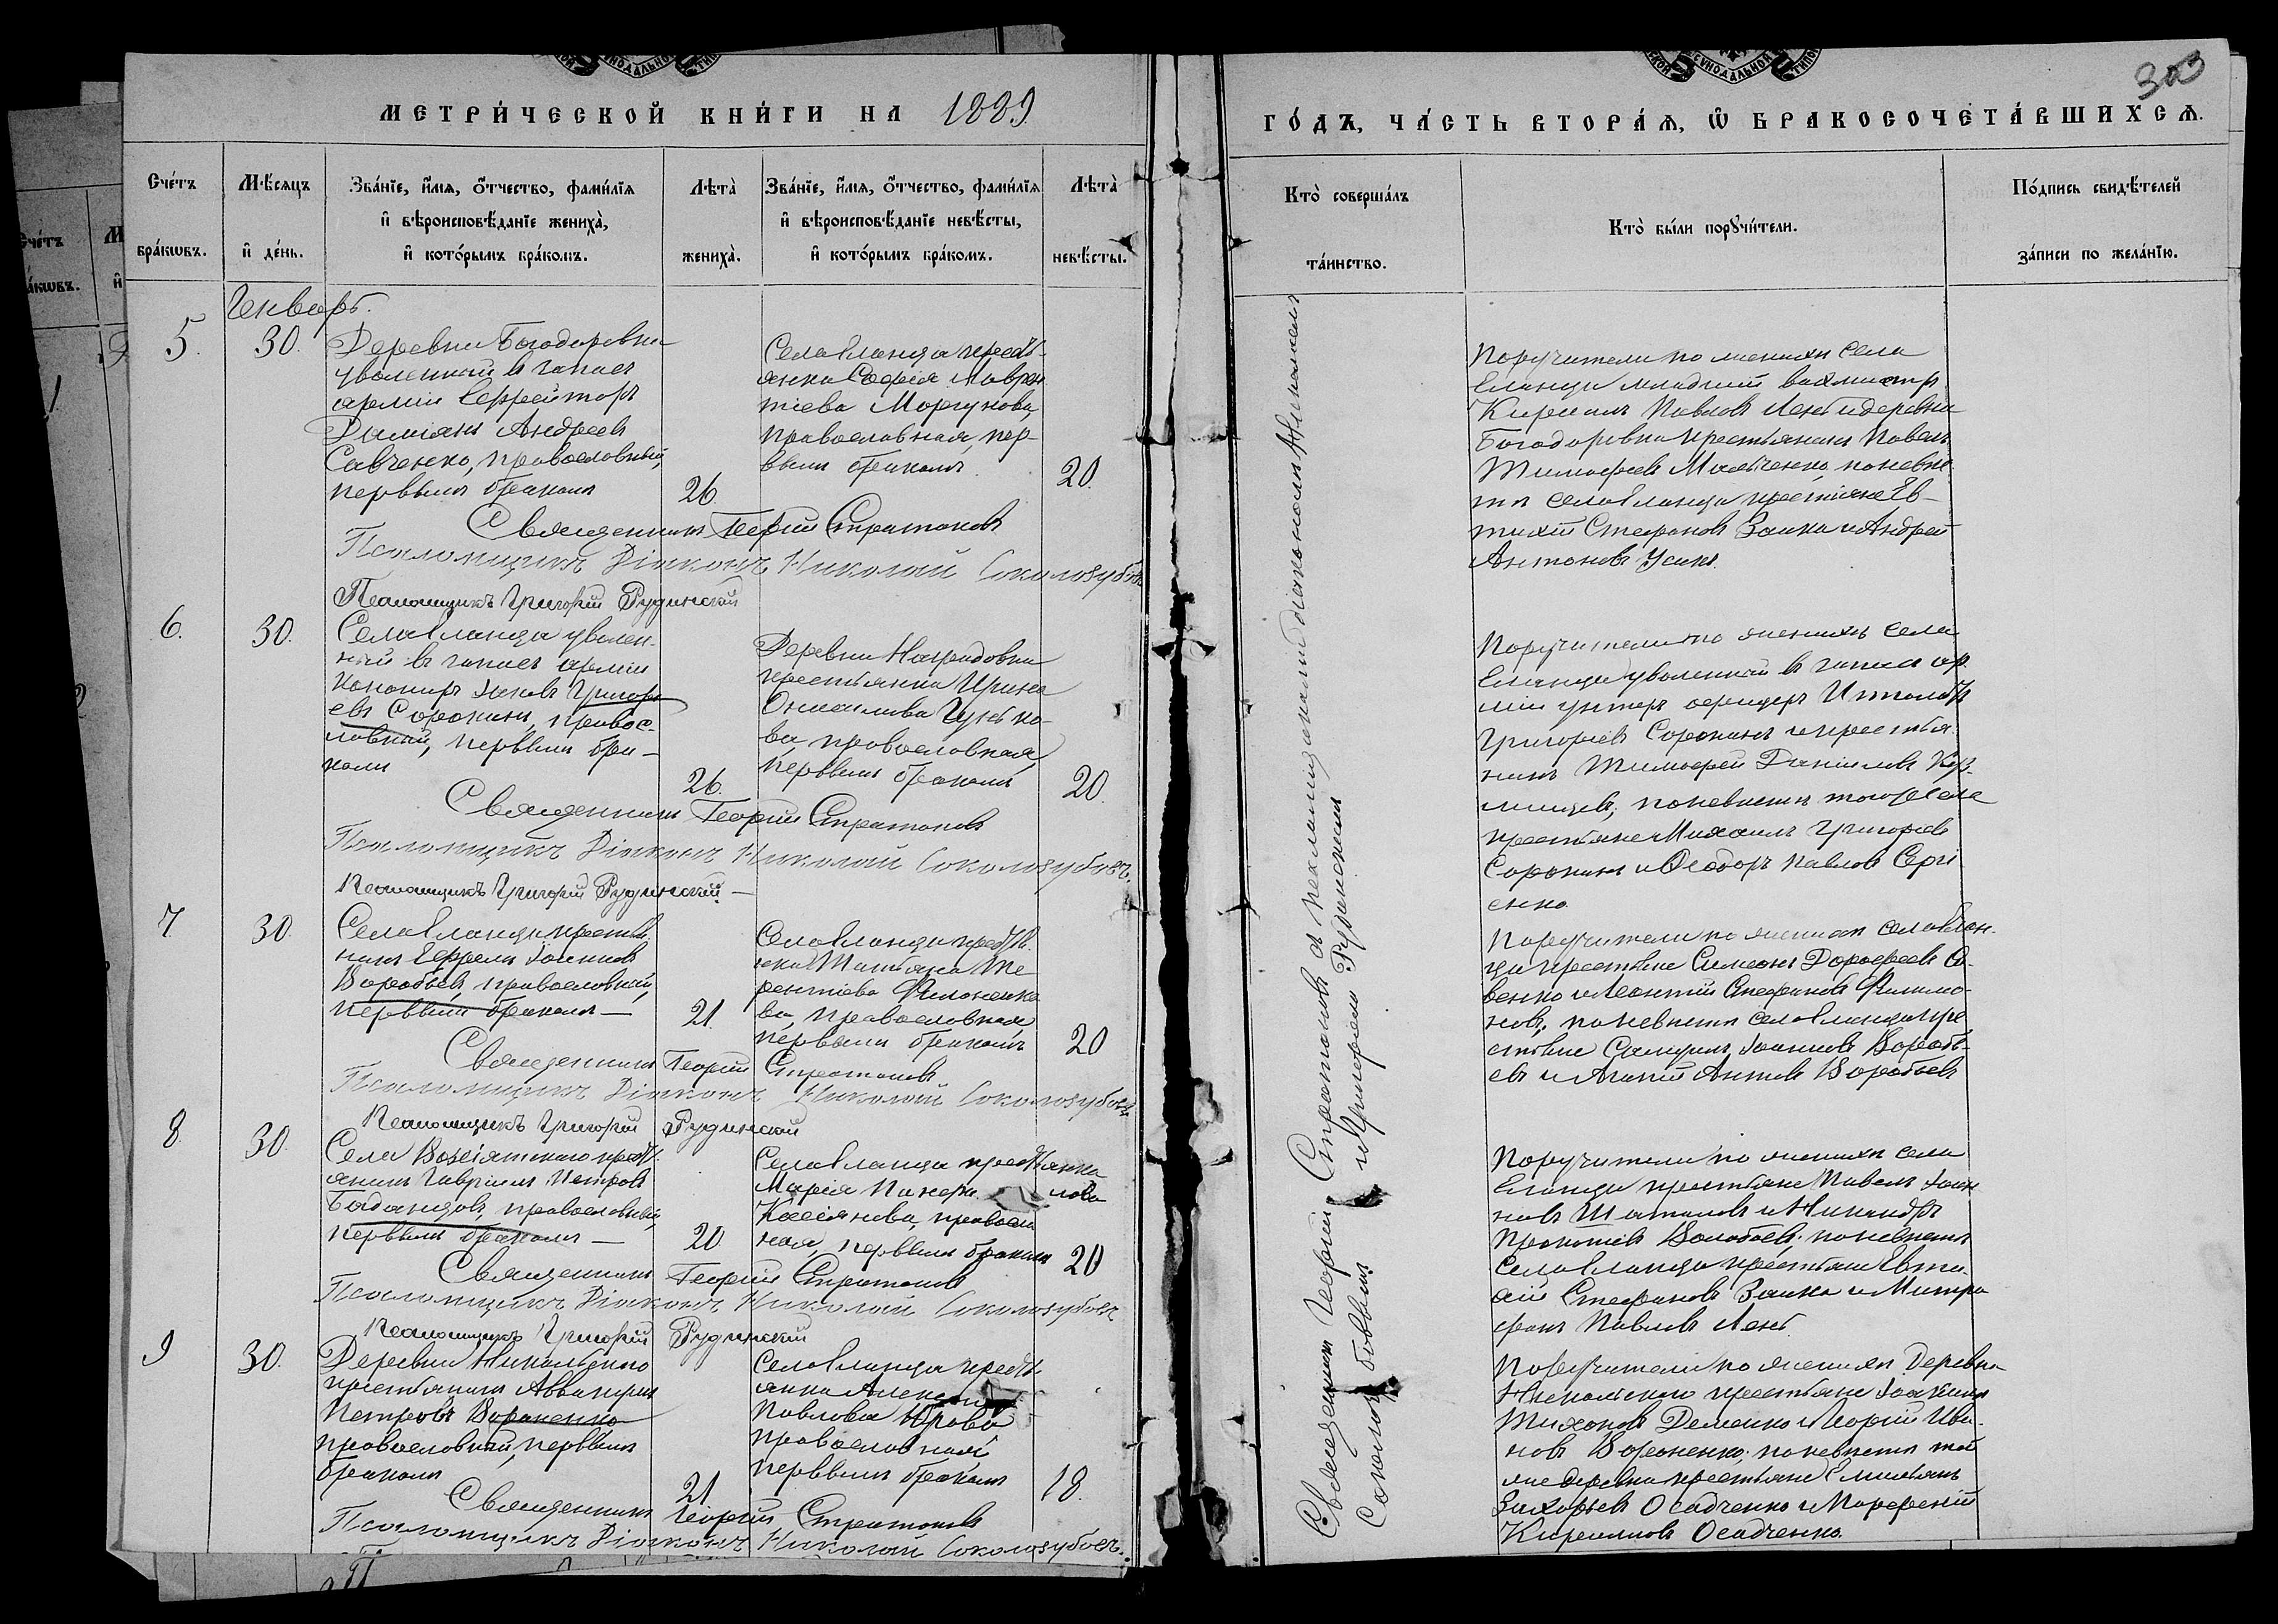 МЕТРИ́ЧЕСКОЙ КНИ́ГИ НА 1889
ГО́ДЪ, ЧА́СТЬ ВТОРА́Ѧ, Ѡ БРАКОСОЧЕТА́ВШИХСѦ.
Сче́тъ бра́кѡвъ.
Мѣ́сяцъ и де́нь.
Зва́нїе, и́мя, о́тчество, фами́лїя
и вѣроисповѣ́данїе жениха̀,
и кото́рымъ бра́комъ.
Лѣта̀ жениха̀.
Зва́нїе, и́мя, о́тчество, фами́лїя
и вѣроисповѣ́данїе невѣ́сты,
и кото́рымъ бра́комъ.
Лѣта̀ невѣ́сты.
Кто̀ соверша́лъ
та́инство.
Кто̀ бы́ли порꙋчи́тели.
По́дпись свидѣ́телей
за́писи по жела́нїю.
Генварь.
5. 30.
Деревни Богодаровки
уволенный в запас
арміи Ефрейторъ
Даміанъ Андреевъ
Савченко, православный,
первымъ бракомъ
26.
Села Еланца кресть-
янка Софія Лаврен
тіева Моргунова,
православная, пер-
вымъ бракомъ
20.
Поручители по женихѣ села
Еланца младшій вахмистръ
Кириллъ Павловъ Лень и деревни
Богодаровки крестьянинъ Павелъ
Тимофеевъ Майченко, по невѣс
тѣ села Еланца крестьяне Ев-
тихій Стефановъ Заика и Андрей
Антоновъ Усикъ.
Священникъ Георгій Стратоновъ
Псаломщикъ Діаконъ Николай Соколозубовъ
Псаломщикъ Григорій Рудинскій
6. 30.
Села Еланца уволен-
ный въ запасъ арміи
канониръ Іаковъ Григорь
евъ Сорокинъ, правос-
лавный, первымъ бра-
комъ
26.
Деревни Наградовки
крестьянка Ирина
Гусько-
ва, православная,
первымъ бракомъ
20.
Поручители по женихѣ села
Еланца уволенный в запас ар
міи унтеръ офицеръ Ипполитъ
Григорьевъ Сорокинъ и крестья
нинъ Тимофей Даніиловъ Куз-
минцевъ, по невѣстѣ тогоже села
крестьяне Михаилъ Григорьевъ
Сорокинъ и Ѳеодоръ Павловъ Серги
енко.
Священникъ Георгій Стратоновъ
Псаломщикъ Діаконъ Николай Соколозубовъ.
Псаломщикъ Григорій Рудинскій. —
7. 30.
Села Еланца крестья
нинъ Іоанновъ
Воробьевъ, православный,
первымъ бракомъ —
21.
Села Еланца крестья
нка Татьяна Те
рентіева Филоненко
ва, православная,
первымъ бракомъ
20
Поручители по женихѣ села Елан-
ца крестьяне Симеонъ Дорофеевъ Са-
венко и Леонтій Стефановъ Филимо-
новъ, по невѣстѣ села Еланца кре
стьяне Самуилъ Іоанновъ Воробь-
евъ и Агапій Антоновъ Воробьевъ
Священникъ Георгій Стратоновъ
Псаломщикъ Діаконъ Николай Соколозубовъ.
Псаломщикъ Григорій Рудинскій
8 30.
Села Возсіятскаго кресть
янинъ Гавріилъ Петровъ
православный,
первымъ бракомъ —
20
Села Еланца крестьянка
Марія лова
Касіянова, правосла
ная, первымъ бракомъ
20
Поручители по женихѣ села
Еланца крестьяне Павелъ Іоан
новъ Шаталовъ и Никандръ
Прокопіевъ Воробьевъ, по невѣстѣ
села Еланца крестьяне Евти
хій Стефановъ Заика и Митро
фанъ Павловъ Лень.
Священникъ Георгій Стратоновъ
Псаломщикъ Діаконъ Николай Соколозубовъ
Псаломщикъ Григорій Рудинскій
9 30.
Деревни Никольского
крестьянинъ Аввакумъ
Петровъ Вороненко
православный, первымъ
бракомъ
21.
Села Еланца кресть-
янка
Павлова Юрова
православная
первымъ бракомъ
18.
Поручители по женихѣ деревни
Никольского крестьяне Іоакимъ
Тихоновъ Деменко и Георгій Ива-
новъ Вороненко, по невѣстѣ той
же деревни крестьяне Емиліанъ
Захарьевъ Осадченко и Парфеній
Кирилловъ Осадченко.
Священникъ Георгій Стратоновъ
Псаломщикъ Діаконъ Николай Соколозубовъ.
Священникъ Георгій Стратоновъ съ псаломщиками діакономъ Николаемъ
Соколозубовымъ и Григоріемъ Рудинскимъ